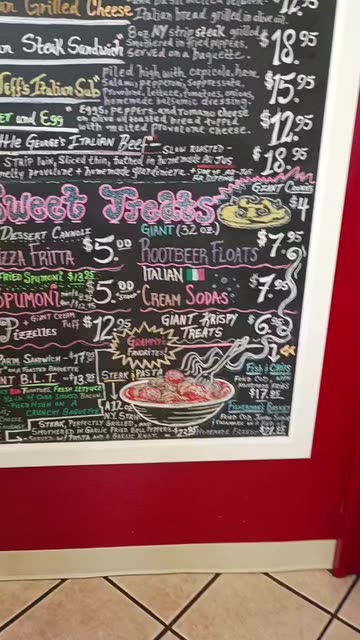 an Grilled Cheese
$12.95
Italian bread grilled in olive oil.
n Steak Sandwich"
8oz NY strip steak grilled
Smothered in fried peppers,
served on a baguette.
$18.95
Jeff's Italian Sub"
piled high with capicola, ham,
Salami, pepperoni, Soppressata,
Provolone, lettuce, tomatoes, onions,
homemade balsamic dressing.
$15.95
er and Egg
Eggs, peppers, and romano cheese
on olive oil toasted bread topped
with melted provolone cheese.
$12.95
ttle George's Italian Beef"
Slow Roasted -
Strip loin, Sliced thin, bathed in homemade Au Jus
melty provolone + homemade giardiniere
$18.95
Sweet Treats
Giant Cookies
$4
Dessert Cannoli
izza Fritta
$5.00
Giant (32 oz.)
Rootbeer Floats
$7.95
Fried Spumoni $13.25
Spumoni
$5.00
Italian
Cream Sodas
$7.95
+ Giant Cream Puff
Pizzelles
$12.95
Giant Krispy
Treats
$6.95
Grammy's
Favorites!
Parm Sandwich - $17.95
on a Toasted Baguette
nt B.L.T. $13.95
Tomatoes, Fresh Lettuce
Smoked Bacon
on a
Crunchy Baguette
Steak & Pasta
A 12 oz
N.Y. Strip
Steak, Perfectly Grilled, and
Smothered in Garlic Fried Bell Peppers
Served w/ Pasta and a Garlic Knot.
Fish & Chips
Fried Cod,
$17.95
Fisherman's Basket
Fried Cod,
Homemade Fries